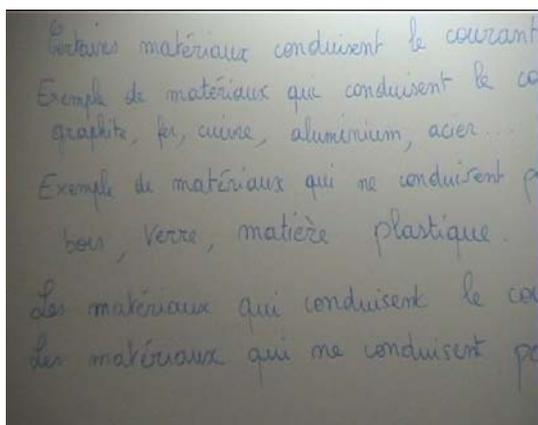 Certaines matériaux conduisent le courant
Exemple de matériaux qui conduisent le co
graphite, fer, cuivre, aluminium, acier...
Exemple de matériaux qui ne conduisent p
bois, verre, matière plastique.
Les matériaux qui conduisent le cou
Les matériaux qui ne conduisent pa